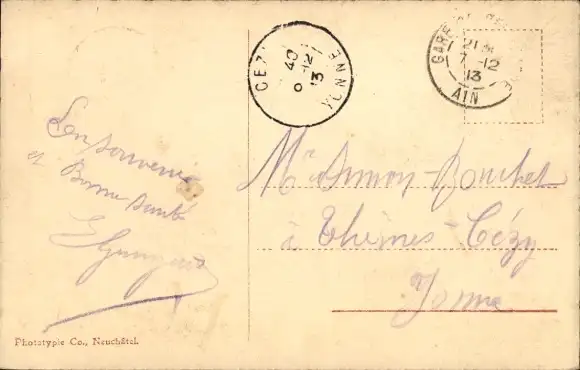 Bon souvenir
et Bonne Santé
CEZY
YONNE
40
8 12
13
GARE
21
7 -12
13
AIN
Mr Simon-Bouchet
à Thèmes-Cézy
Yonne
Phototypie Co., Neuchâtel.